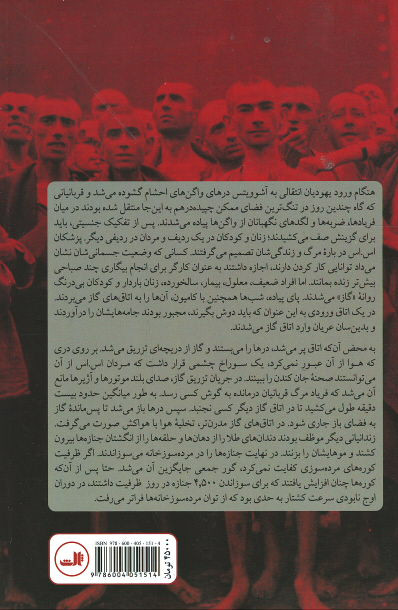 هنگام ورود یهودیان انتقالی به آشوویتس درهای واگن‌های احشام گشوده می‌شد و قربانیانی
که گاه چندین روز در تنگ‌ترین فضای ممکن چپیده‌درهم به این‌جا منتقل شده بودند در میان
فریادها، ضربه‌ها و لگدهای نگهبانان از واگن‌ها پیاده می‌شدند. پس از تفکیک جنسیتی، باید
برای گزینش صف می‌کشیدند؛ زنان و کودکان در یک ردیف و مردان در ردیفی دیگر. پزشکان
اس.اس در بارهٔ مرگ و زندگی‌شان تصمیم می‌گرفتند. کسانی که وضعیت جسمانی‌شان نشان
می‌داد توانایی کار کردن دارند، اجازه داشتند به عنوان کارگر برای انجام بیگاری چند صباحی
بیش‌تر زنده بمانند. اما افراد ضعیف، معلول، بیمار، سالخورده، زنان باردار و کودکان بی‌درنگ
روانهٔ «گاه» می‌شدند. پای پیاده، شب‌ها همچنین با کامیون، آن‌ها را به اتاق‌های گاز می‌بردند.
در یک اتاق ورودی به این عنوان که باید دوش بگیرند، مجبور بودند جامه‌هایشان را درآورند
و بدین‌سان عریان وارد اتاق گاز می‌شدند.
به محض آن‌که اتاق پر می‌شد، درها را می‌بستند و گاز از دریچه‌ای تزریق می‌شد. بر روی دری
که هوا از آن عبور نمی‌کرد، یک سوراخ چشمی قرار داشت که مردان اس.اس از آن
می‌توانستند صحنهٔ جان کندن را ببینند. در جریان تزریق گاز، صدای بلند موتورها و آژیرها مانع
آن می‌شد که فریاد مرگ قربانیان درمانده به گوش کسی رسد. به طور میانگین حدود بیست
دقیقه طول می‌کشید تا در اتاق گاز دیگر کسی نجنبد. سپس درها باز می‌شد تا پس‌ماندهٔ گاز
به فضای باز جاری شود. در اتاق‌های گاز مدرن‌تر، تخلیهٔ هوا با هواکش صورت می‌گرفت.
زندانیانی دیگر موظف بودند دندان‌های طلا را از دهان‌ها و حلقه‌ها را از انگشتان جنازه‌ها بیرون
کشند و موهایشان را بزنند. در نهایت جنازه‌ها را در مرده‌سوزخانه می‌سوزاندند. اگر ظرفیت
کوره‌های مرده‌سوزی کفایت نمی‌کرد، گور جمعی جایگزین آن می‌شد. حتا پس از آن‌که
کوره‌ها چنان افزایش یافتند که برای سوزاندن ۴,۵۰۰ جنازه در روز ظرفیت داشتند، در دوران
اوج نابودی سرعت کشتار به حدی بود که از توان مرده‌سوزخانه‌ها فراتر می‌رفت.
ISBN 978 - 600 - 405 - 151 - 4
9 786004 051514
۴۵۰۰۰ تومان
ثالث